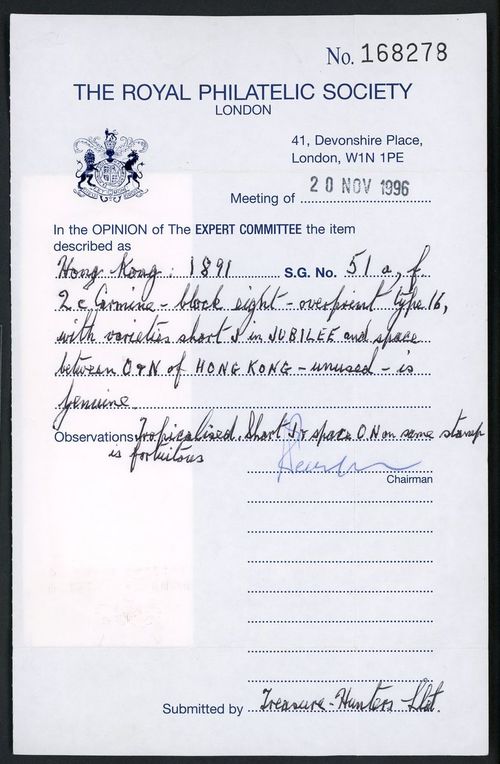 No. 168278
THE ROYAL PHILATELIC SOCIETY
LONDON
41, Devonshire Place,
London, W1N 1PE
Meeting of 20 NOV 1996
In the OPINION of The EXPERT COMMITTEE the item
described as
Hong Kong: 1891 S.G. No. 51 a, f
2 c Carmine - block eight - overprint type 16,
with varieties short J in JUBILEE and space
between O & N of HONG KONG - unused - is
genuine.
Observations Tropicalised. Short J & space O N on same stamp
is fortuitous
Chairman
Submitted by Treasure-Hunters Ltd.